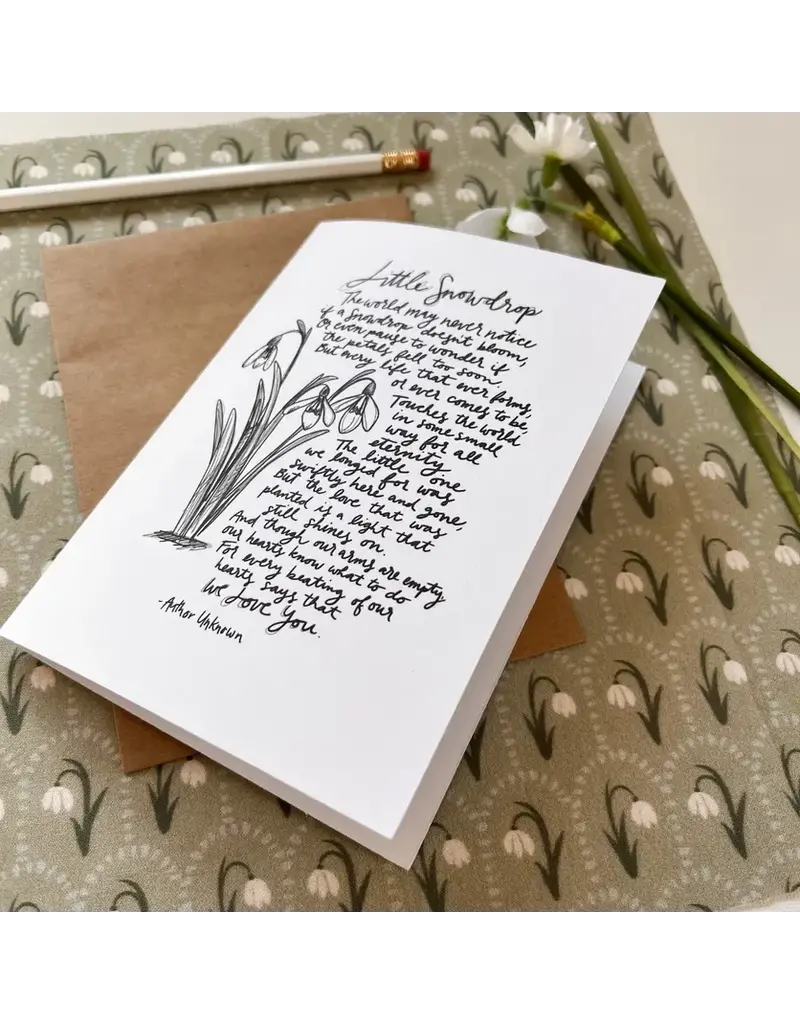 Little Snowdrop
The world may never notice
if a Snowdrop doesn't bloom,
Or even pause to wonder if
the petals fell too soon.
But every life that ever forms,
or ever comes to be,
Touches the world
in some small
way for all
eternity.
The little one
we longed for was
swiftly here and gone,
But the love that was
planted is a light that
still shines on.
And though our arms are empty
our hearts know what to do
For every beating of our
hearts says that
We Love You.
-Author Unknown